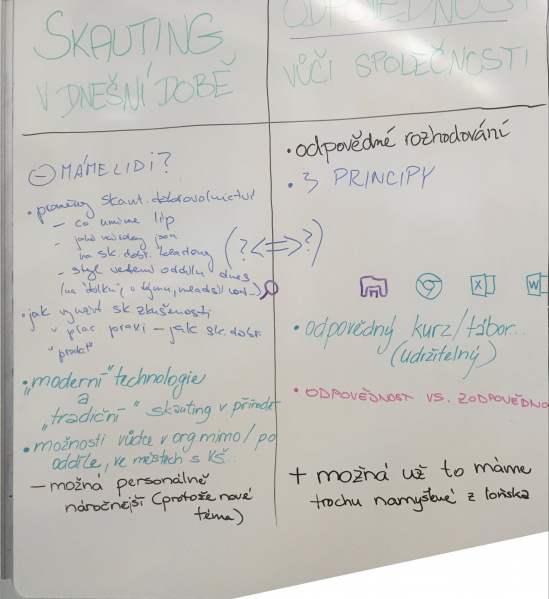 SKAUTING
V DNEŠNÍ DOBĚ
⊖ MÁME LIDI?
• proměny skaut. dobrovolnictví
– co umíme líp
– jaké nároky jsou
na sk. dobr. kladeny
– styl vedení oddílu dnes
(na "dálku", v týmu, mladší
• jak využít sk. zkušenosti
v prac. praxi – jak sk. dobr.
• "moderní" technologie
a
"tradiční" skauting v přírodě
• možnosti vůdce v org. mimo/po
oddíle, ve městech s VŠ..
– možná personálně
náročnější (protože nové
téma)
(?<=>?)
ODPOVĚDNOST
VŮČI SPOLEČNOSTI
• odpovědné rozhodování
• 3 PRINCIPY
X
W
• odpovědný kurz/tábor...
(udržitelný)
• ODPOVĚDNOST VS. ZODPOVĚDNO
+ možná už to máme
trochu namyšlené z loňska